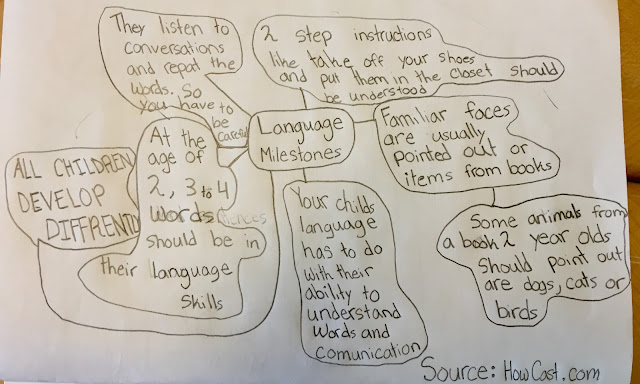 They listen to
conversations
and repat the
words. So
you have to
be
careful
2 step instructions
like take off your shoes
and put them in the closet should
be understood
Language
Milestones
Familiar faces
are usually
pointed out or
items from books
ALL CHILDREN
DEVELOP
DIFFRENTLY
At the
age of
2, 3 to 4
words
should be in
their language
skills
Your childs
language
has to do
with their
ability to
understand
words and
comunication
Some animals from
a book 2 year olds
should point out
are dogs, cats or
birds
Source: HowCast.com